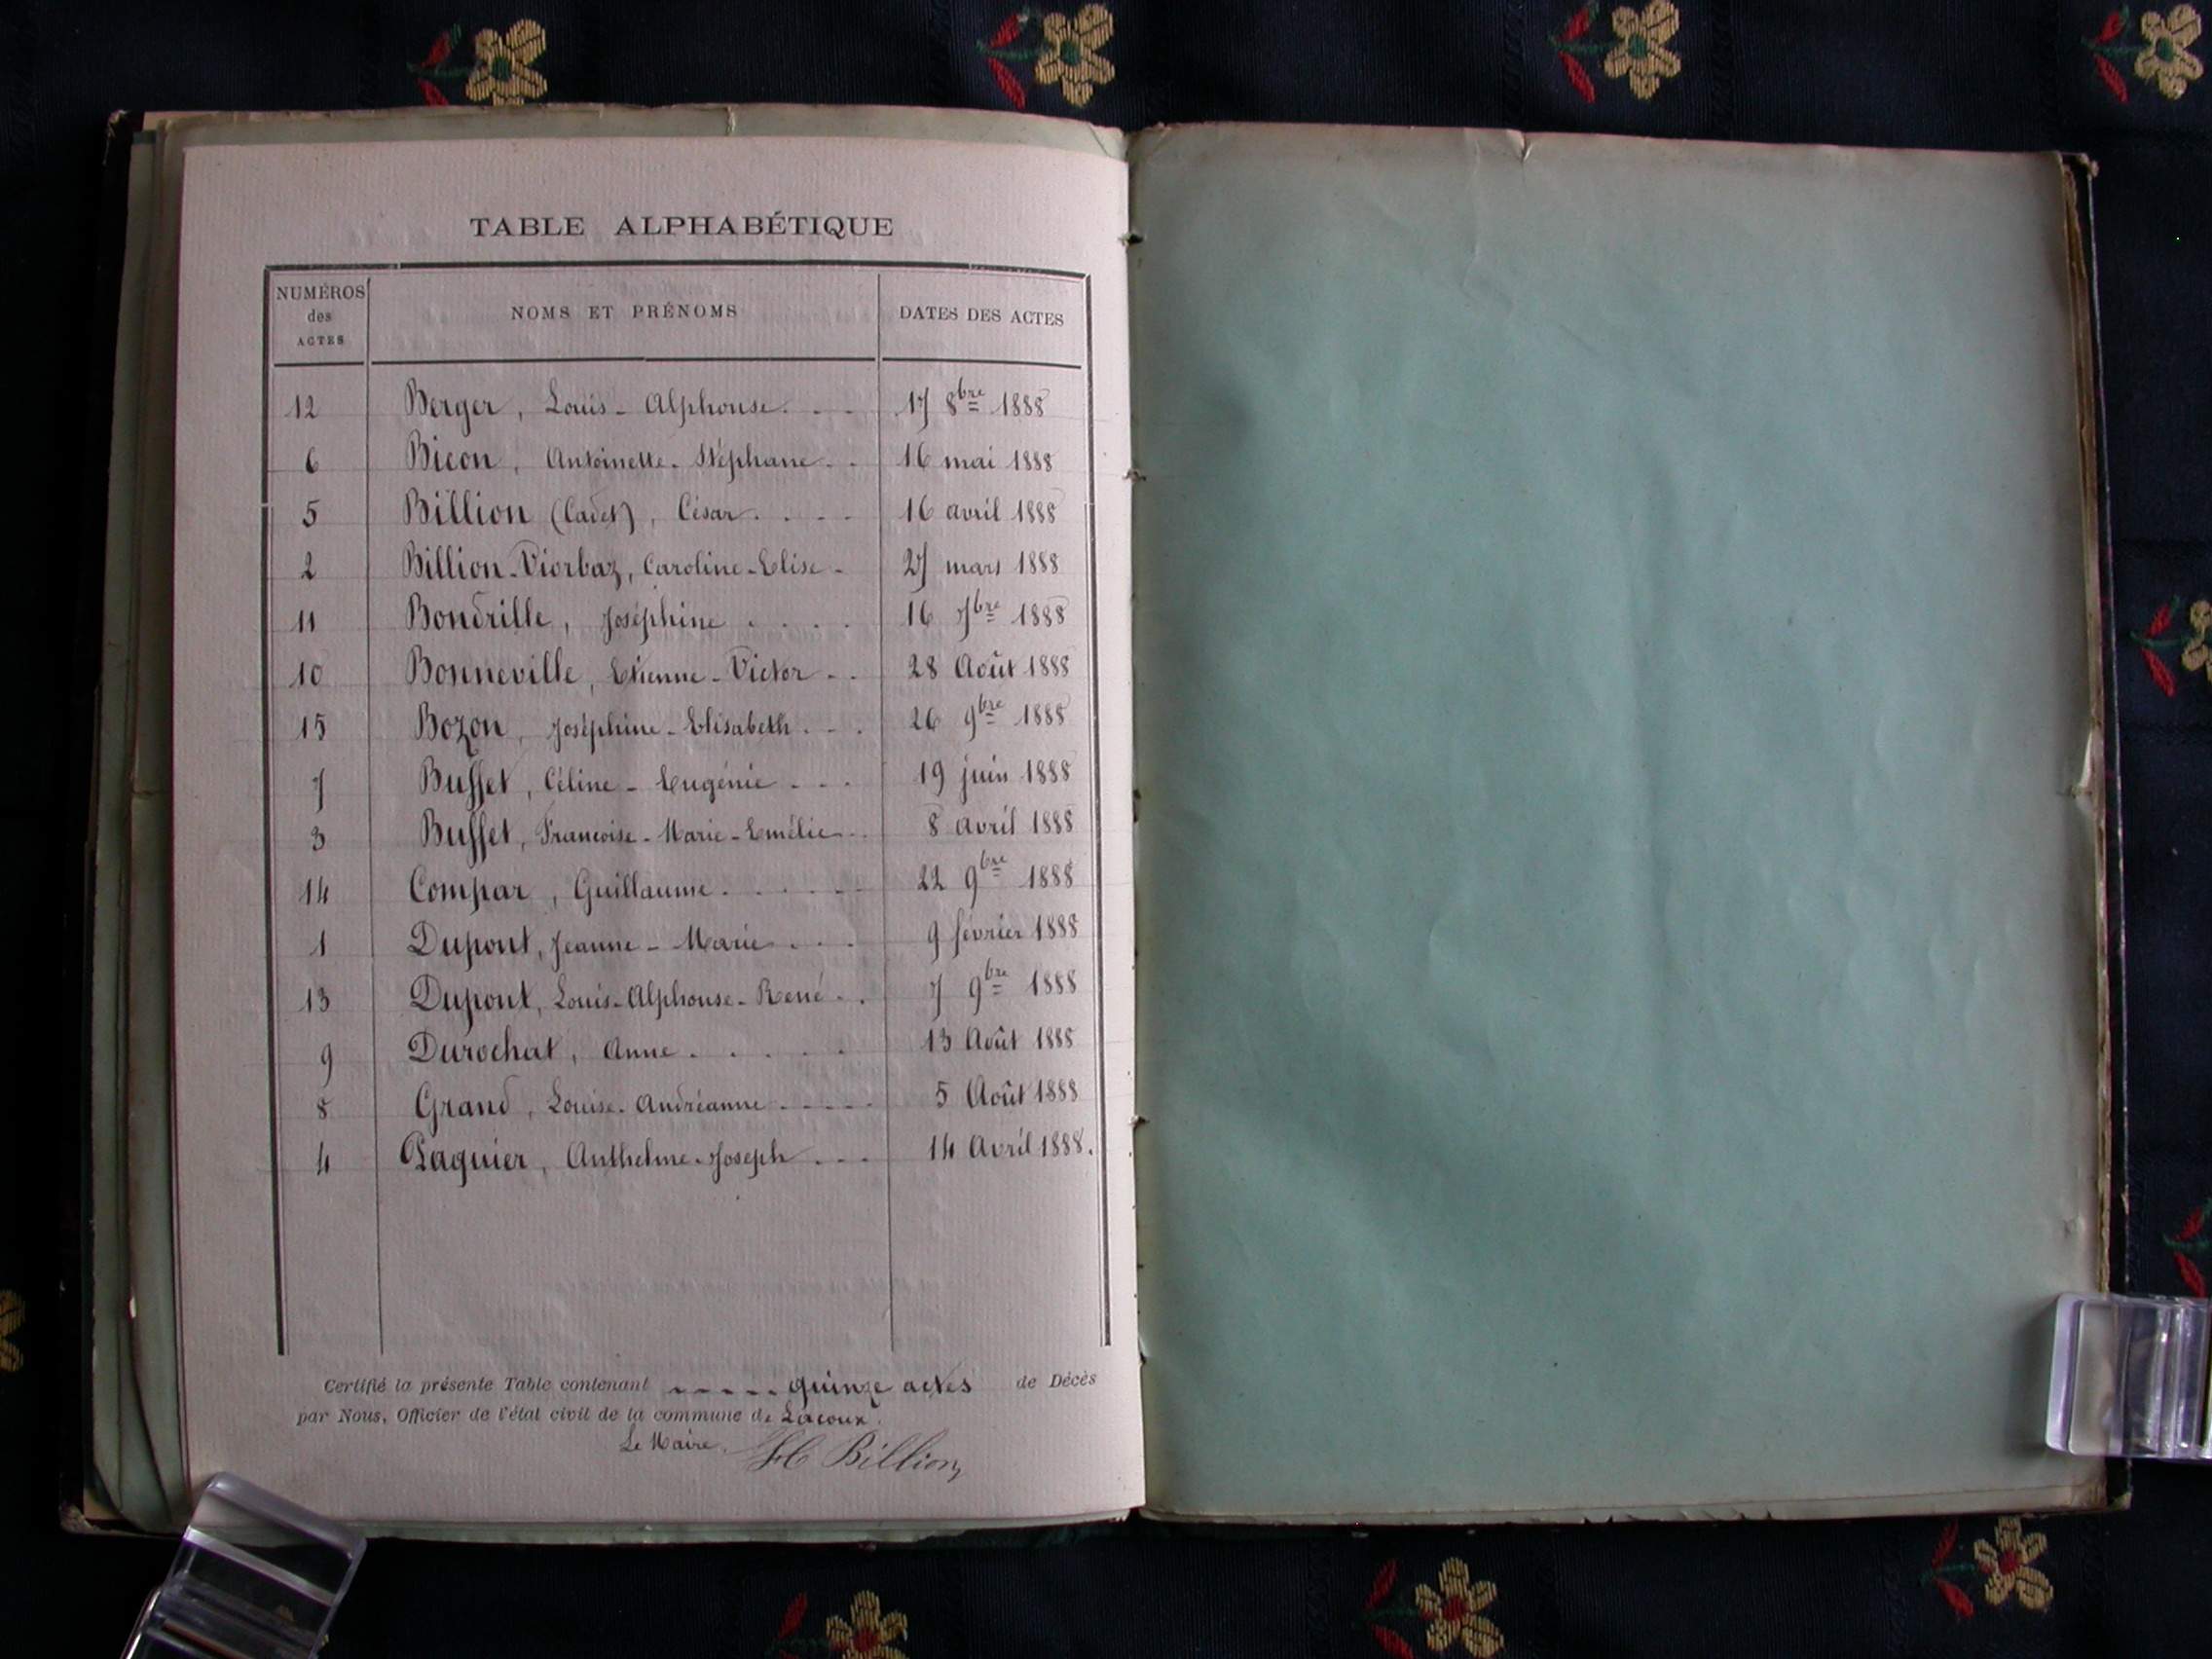 TABLE ALPHABÉTIQUE
NUMÉROS des ACTES NOMS ET PRÉNOMS DATES DES ACTES
12 Berger, Louis-Alphonse. . . 17 8bre 1888
6 Bicon, Antoinette-Stéphane. . 16 mai 1888
5 Billion (Cadet), César. . . . 16 avril 1888
2 Billion-Viorbaz, Caroline-Elise - 27 mars 1888
11 Bondrille, Joséphine . . . . 16 7bre 1888
10 Bonneville, Etienne-Victor - . 28 Août 1888
15 Bozon, Joséphine-Elisabeth. - . 26 9bre 1888
7 Buffet, Céline-Eugénie . . . 19 juin 1888
3 Buffet, Francoise-Marie-Emélie . . 8 avril 1888
14 Compar, Guillaume. . . . . . 22 9bre 1888
1 Dupont, Jeanne-Marie . . . 9 février 1888
13 Dupont, Louis-Alphonse-René - . 7 9bre 1888
9 Durochat, Anne. . . . . 13 Août 1888
8 Grand, Louise-Andréanne - - - - - 5 Août 1888
4 Laguier, Anthelme-Joseph . - - 14 Avril 1888.
Certifié la présente Table contenant - - - - - quinze actes de Décès
par Nous, Officier de l'état civil de la commune de Lacoux.
Le Maire, Billion